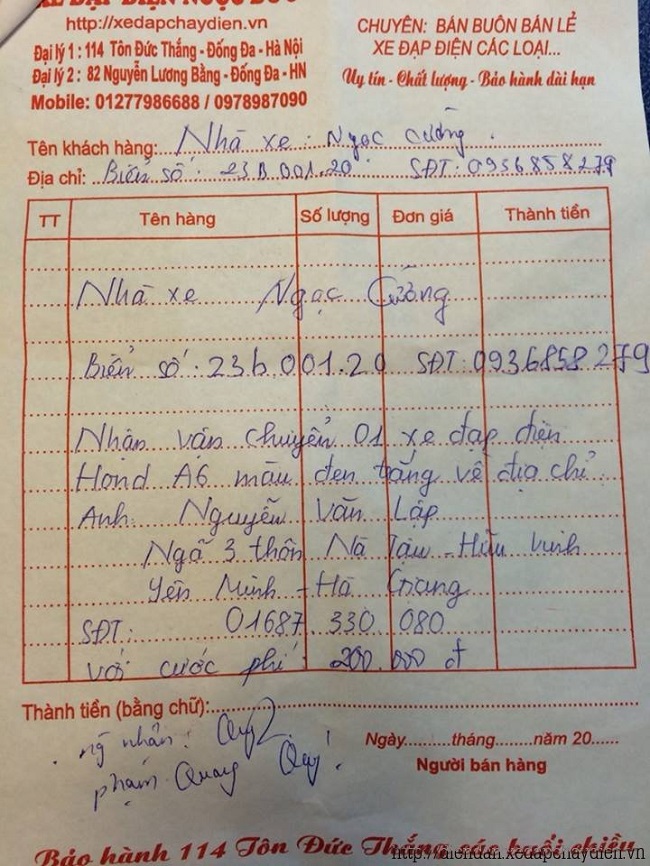 XE ĐẠP ĐIỆN NGỌC ĐỨC
http://xedapchaydien.vn
Đại lý 1 : 114 Tôn Đức Thắng - Đống Đa - Hà Nội
Đại lý 2 : 82 Nguyễn Lương Bằng - Đống Đa - HN
Mobile: 01277986688 / 0978987090
CHUYÊN: BÁN BUÔN BÁN LẺ
XE ĐẠP ĐIỆN CÁC LOẠI...
Uy tín - Chất lượng - Bảo hành dài hạn
Tên khách hàng: Nhà xe : Ngọc Cường.
Địa chỉ: Biển số : 23B 001.20 SĐT: 0936858279
TT Tên hàng Số lượng Đơn giá Thành tiền
Nhà xe Ngọc Cường
Biển số : 23b.001.20 SĐT: 0936858279
Nhận vận chuyển 01 xe đạp điện
Hond A6 màu đen trắng về địa chỉ:
Anh: Nguyễn Văn Láp
Ngã 3 thôn Nà Tậu - Hữu Vinh
Yên Minh - Hà Giang
SĐT: 01687 330 080
với cước phí : 200.000 đ
Thành tiền (bằng chữ):
ng nhận: Quý
phạm Quang Quý.
Ngày.........tháng........năm 20......
Người bán hàng
Bảo hành 114 Tôn Đức Thắng các buổi chiều
http://dichuan.xedapchaydien.vn